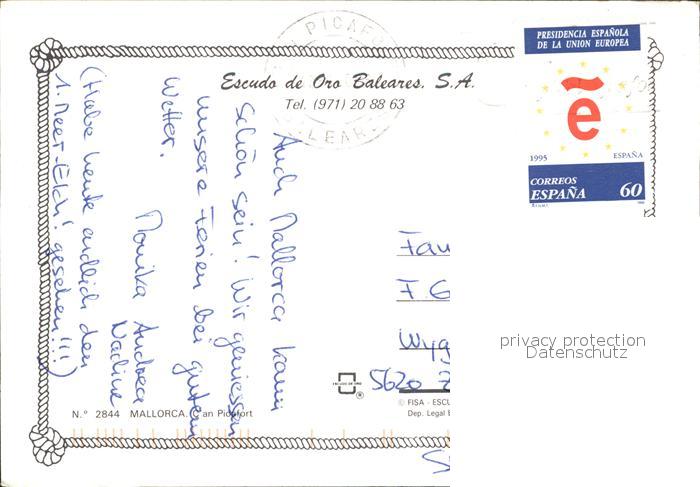 PICAFO
LEAR
PRESIDENCIA ESPAÑOLA
DE LA UNION EUROPEA
e
1995 ESPAÑA
CORREOS
ESPAÑA 60
Escudo de Oro Baleares, S.A.
Tel. (971) 20 88 63
Auch Mallorca kann
schön sein! Wir geniessen
unsere Ferien bei gutem
Wetter.
Monika Andrea
Nadine
(Habe heute endlich den
1. Meer-Elch! gesehen!!!)
Fam
F. G
Wyg
5620 Z
privacy protection
Datenschutz
ESCUDO DE ORO
®
© FISA - ESCU
Dep. Legal B
N.º 2844 MALLORCA. C'an Picafort